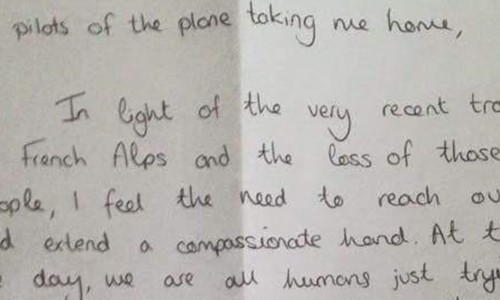 pilots of the plane taking me home,
In light of the very recent tra
French Alps and the loss of those
ople, I feel the need to reach ou
d extend a compassionate hand. At t
e day, we are all humans just tryi